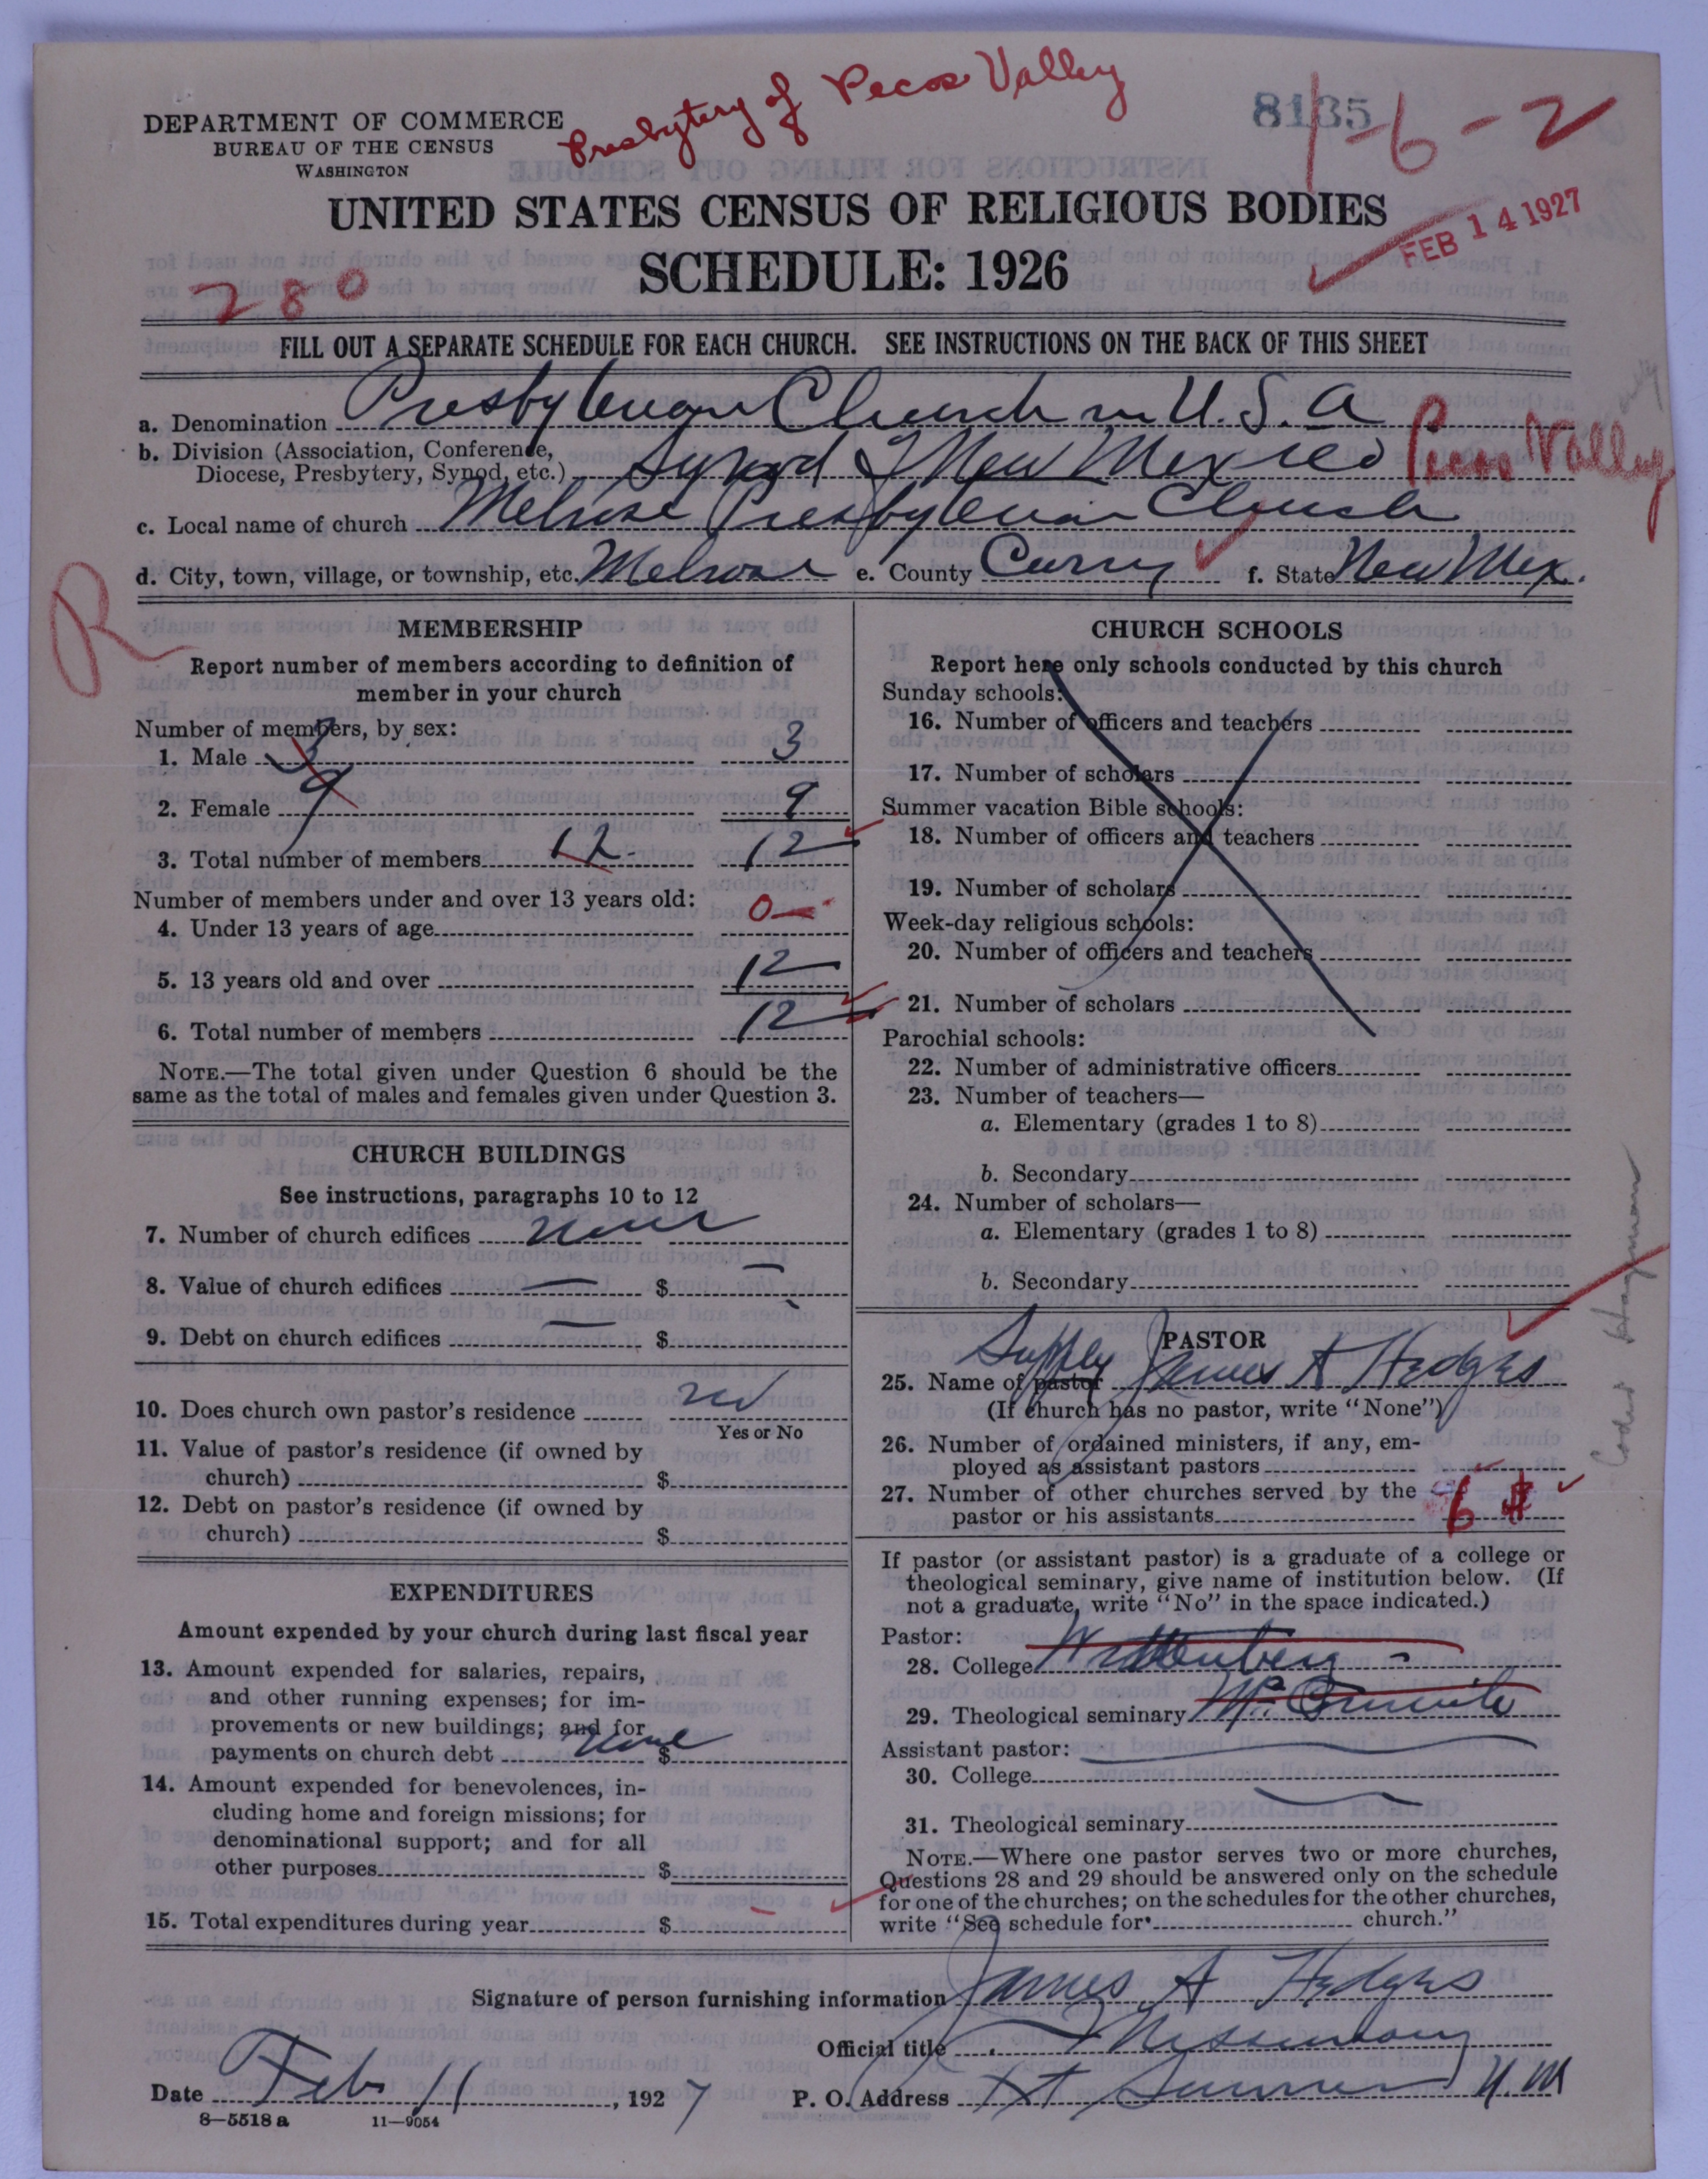 Presbytery of Pecos Valley
8135
1-6-2
DEPARTMENT OF COMMERCE
BUREAU OF THE CENSUS
WASHINGTON
UNITED STATES CENSUS OF RELIGIOUS BODIES
SCHEDULE: 1926
FEB 14 1927
280
FILL OUT A SEPARATE SCHEDULE FOR EACH CHURCH. SEE INSTRUCTIONS ON THE BACK OF THIS SHEET
a. Denomination Presbyterian Church in U.S.A
b. Division (Association, Conference,
Diocese, Presbytery, Synod, etc.) Synod of New Mexico Pecos Valley
c. Local name of church Melrose Presbyterian Church
d. City, town, village, or township, etc. Melrose e. County Curry f. State New Mex.
R
MEMBERSHIP
Report number of members according to definition of
member in your church
Number of members, by sex:
1. Male 3 3
2. Female 9 9
3. Total number of members 12 12
Number of members under and over 13 years old:
4. Under 13 years of age 0
5. 13 years old and over 12
6. Total number of members 12
NOTE.—The total given under Question 6 should be the
same as the total of males and females given under Question 3.
CHURCH BUILDINGS
See instructions, paragraphs 10 to 12
7. Number of church edifices none
8. Value of church edifices — $ —
9. Debt on church edifices — $ -
10. Does church own pastor's residence no
Yes or No
11. Value of pastor's residence (if owned by
church) $
12. Debt on pastor's residence (if owned by
church) $
EXPENDITURES
Amount expended by your church during last fiscal year
13. Amount expended for salaries, repairs,
and other running expenses; for im-
provements or new buildings; and for
payments on church debt none $
14. Amount expended for benevolences, in-
cluding home and foreign missions; for
denominational support; and for all
other purposes $
15. Total expenditures during year $ -
CHURCH SCHOOLS
Report here only schools conducted by this church
Sunday schools:
16. Number of officers and teachers
17. Number of scholars
Summer vacation Bible schools:
18. Number of officers and teachers
19. Number of scholars
Week-day religious schools:
20. Number of officers and teachers
21. Number of scholars
Parochial schools:
22. Number of administrative officers
23. Number of teachers—
a. Elementary (grades 1 to 8)
b. Secondary
24. Number of scholars—
a. Elementary (grades 1 to 8)
b. Secondary
PASTOR
Supply
25. Name of pastor James A Hedges
(If church has no pastor, write "None")
26. Number of ordained ministers, if any, em-
ployed as assistant pastors
27. Number of other churches served by the
pastor or his assistants 6 #
If pastor (or assistant pastor) is a graduate of a college or
theological seminary, give name of institution below. (If
not a graduate, write "No" in the space indicated.)
Pastor:
28. College Wittenberg -
29. Theological seminary McCormick
Assistant pastor:
30. College
31. Theological seminary
NOTE.—Where one pastor serves two or more churches,
Questions 28 and 29 should be answered only on the schedule
for one of the churches; on the schedules for the other churches,
write "See schedule for church."
Signature of person furnishing information James A Hedges
Official title Missionary
Date Feb 11, 1927 P. O. Address Ft Sumner N. M
8—5518 a 11—9054